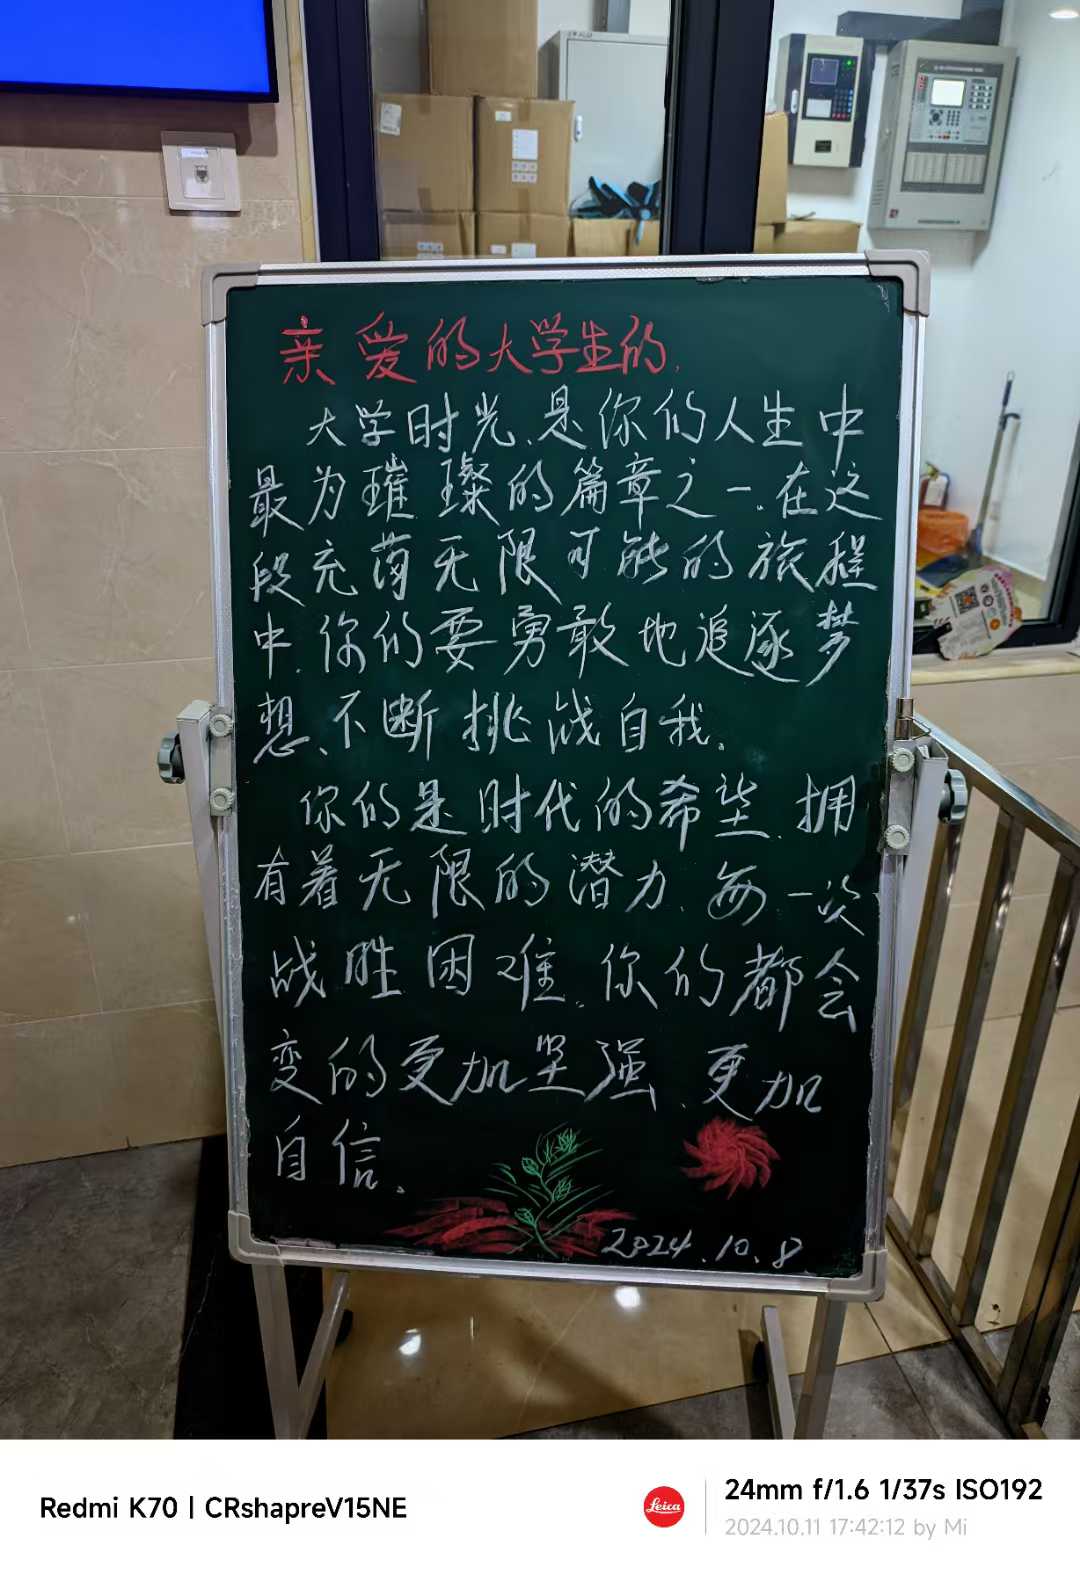 亲爱的大学生的.
大学时光、是你的人生中
最为璀璨的篇章之一.在这
段充满无限可能的旅程
中.你的要勇敢地追逐梦
想、不断挑战自我.
你的是时代的希望.拥
有着无限的潜力.每一次
战胜困难.你的都会
变的更加坚强、更加
自信.
2024.10.8
Redmi K70 | CRshapreV15NE
Leica
24mm f/1.6 1/37s ISO192
2024.10.11 17:42:12 by Mi